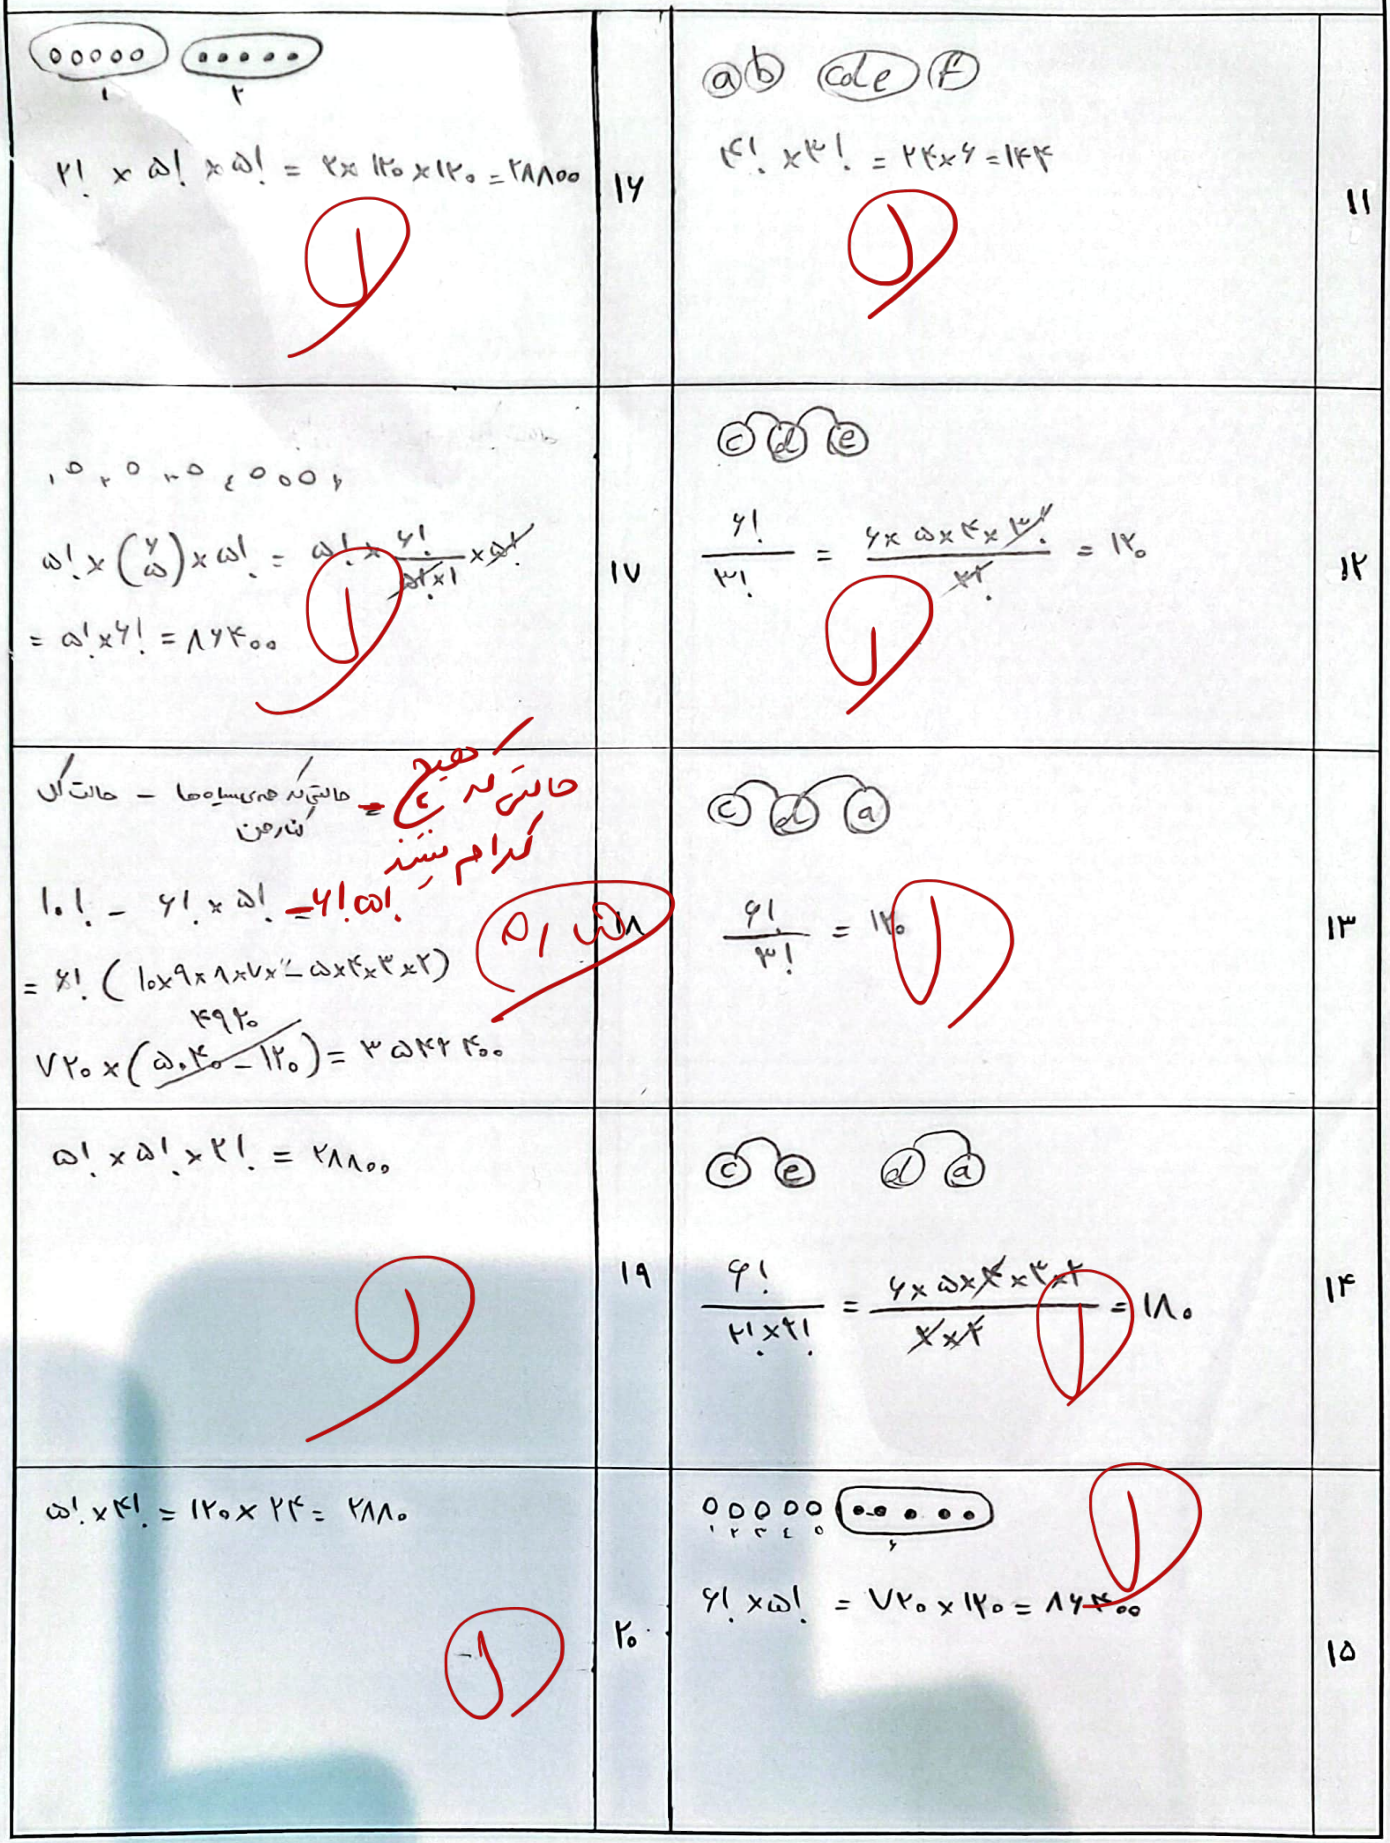 ۱۱
a b cde f
۴! × ۳! = ۲۴×۶ = ۱۴۴
۱
۱۲
c d e
۶! / ۳! = ۶×۵×۴×۳! / ۳! = ۱۲۰
۱
۱۳
c d a
۶! / ۳! = ۱۲۰
۱
۱۴
c e d a
۶! / ۲!×۲! = ۶×۵×۴×۳×۲ / ۲×۲ = ۱۸۰
۱
۱۵
۱ ۲ ۳ ٤ ۵ ۶
۶! × ۵! = ۷۲۰ × ۱۲۰ = ۸۶۴۰۰
۱
۱۶
۱ ۲
۲! × ۵! × ۵! = ۲×۱۲۰×۱۲۰ = ۲۸۸۰۰
۱
۱۷
۱ ۲ ۳ ٤ ۶
۵! × (۶ ۵) × ۵! = ۵! × ۶! / ۵!×۱ × ۵!
= ۵!×۶! = ۸۶۴۰۰
۱
۱۸
حالت کل – حالتی که همه‌ی سیاه‌ها کنار هن = حالتی که هیچ
کدام نیستند
۱۰! – ۶! × ۵! – ۶!۵!
= ۶! (۱۰×۹×۸×۷× – ۵×۴×۳×۲)
۴۹۲۰
۷۲۰×(۵۰۴۰ – ۱۲۰) = ۳۵۴۲۴۰۰
۱۹
۵! × ۵! × ۲! = ۲۸۸۰۰
۱
۲۰
۵! × ۴! = ۱۲۰ × ۲۴ = ۲۸۸۰
۱